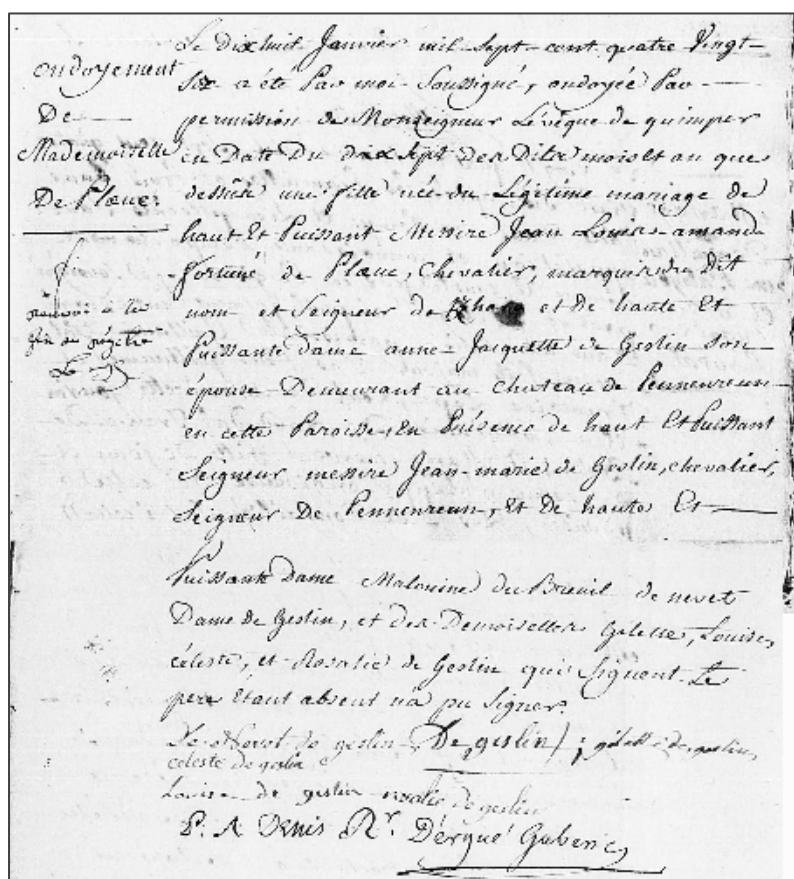 ondoyement
De
Mademoiselle
De Plœuc
renvoi a la
fin du régistre
Le dix huit Janvier mil Sept cent quatre Vingt
Six a été Par moi Soussigné, ondoyée Par
permission de Monseigneur L'évêque de quimper
en Date Du dix Sept des Dits mois et an que
dessûs une fille née du Légitime mariage de
haut Et Puissant Messire Jean Louis amand
fortuné de Plœuc, Chevalier, marquis du dit
nom et Seigneur de et de haute Et
Puissante dame anne Jacquette de Geslin Son
épouse Demeurant au Chateau de Pennenreun
en cette Paroisse, En Présence de haut Et Puissant
Seigneur messire Jean-marie de Geslin, chevalier,
Seigneur De Pennenreun, Et de haute Et
Puissante Dame Malouine du Breuil de nevet
Dame de Geslin, et des Demoiselles Gilette, Louise,
céleste, et Rosalie de Geslin qui Signent. Le
pere Etant absent n'a pu Signer.
de geslin De geslin ; gilette de geslin
celeste de geslin
Louise de geslin rosalie de geslin
P. A. Denis Rr. D'ergué Gaberic